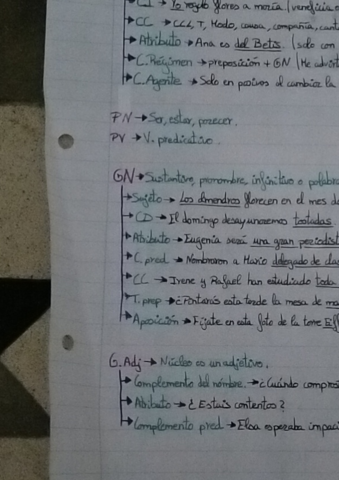 CI → Le regalo flores a maría (veneficia
CC → CCL, T, Modo, causa, compañía, cant
Atributo → Ana es del Betis. (solo con
C. Régimen → preposición + GN (Me advirt
C. Agente → Solo en pasivas al cambiar la
PN → Ser, estar, parecer.
PV → V. predicativo.
GN → Sustantivo, pronombre, infinitivo o palabra
Sujeto → Los almendros florecen en el mes de
CD → El domingo desayunaremos tostadas
Atributo → Eugenia será una gran periodist
C. pred → Nombraron a Mario delegado de clas
CC → Irene y Rafael han estudiado toda
T. prep → ¿Pintarás esta tarde la mesa de ma
Aposición → Fíjate en esta foto de la torre Eiff
G. Adj → Núcleo es un adjetivo.
Complemento del nombre. → ¿Cuándo compras
Atributo → ¿Estáis contentos?
Complemento pred → Elsa esperaba impac